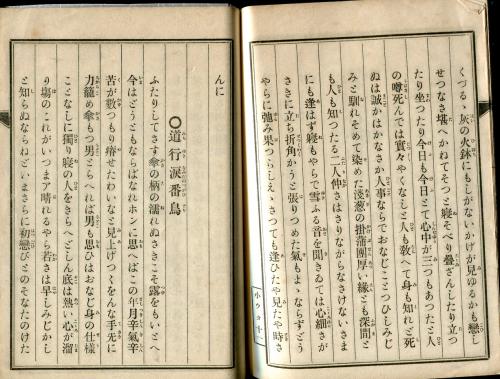 くづるゝ灰の火鉢にもしがないかげが見ゆるかも戀し
せつなさ堪へかねてそつと寝そべり疊ざんしたり立つ
たり坐つたり今日も今日とて心中が三つもあつたと人
の噂死んでは實々やくなしと人も敎へて身も知れど死
ぬは誠かはかなさか人事ならでおなじことつひしみじ
みと馴れそめて染めた淺葱の掛蒲團厚い緣とも深間と
も人も知つたる二人仲さはさりながらなさけないさま
にも逢はず寝もやらで雪ふる音を聞きゐては心細さが
さきに立ち折角かうと張りつめた氣もよゝならずどう
やらに弛み果つらしえゝさつても逢ひたや見たや時さ
小ウタ十一
んに
○道行淚番鳥
ふたりしてさす傘の柄の濡れぬさきこそ露をもいとへ
今はどうともならばなれホンに思へばこの年月辛氣辛
苦が數つもり瘠せたわいなと見上げつくをんな手先に
力籠め傘もつ男とらへれば男も思ひはおなじ身の仕樣
ことなしに獨り寝の人をきらへどしん底は熱い心が溜
り塲のこれがいつまア晴れるやら若さは早しみじかし
と知らぬならねどいまさらに初戀びとのそなたのけた